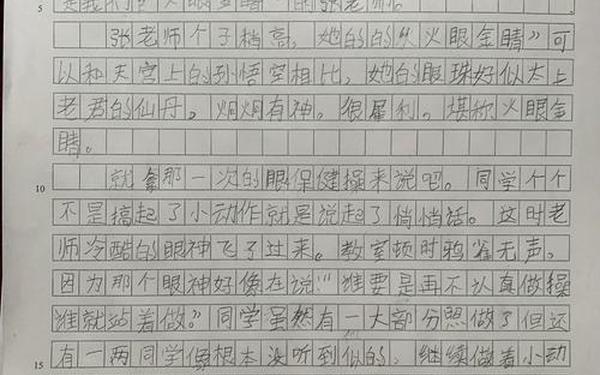 5 是我们的"火眼金睛"的张老师。
张老师个子稍高，她的的"火眼金睛"可
以和天宫上的孙悟空相比，她的眼珠好似太上
老君的仙丹。炯炯有神。很犀利。堪称火眼金
睛。
10 就拿那一次的眼保健操来说吧。同学个个
不是搞起了小动作就是说起了悄悄话。这时老
师冷酷的眼神飞了过来。教室顿时鸦雀无声。
因为那个眼神好像在说："谁要是再不认真做操
谁就站着做。"同学虽然有一大部分照做了但还
15 有一两同学像根本没听到似的，继续做着小动